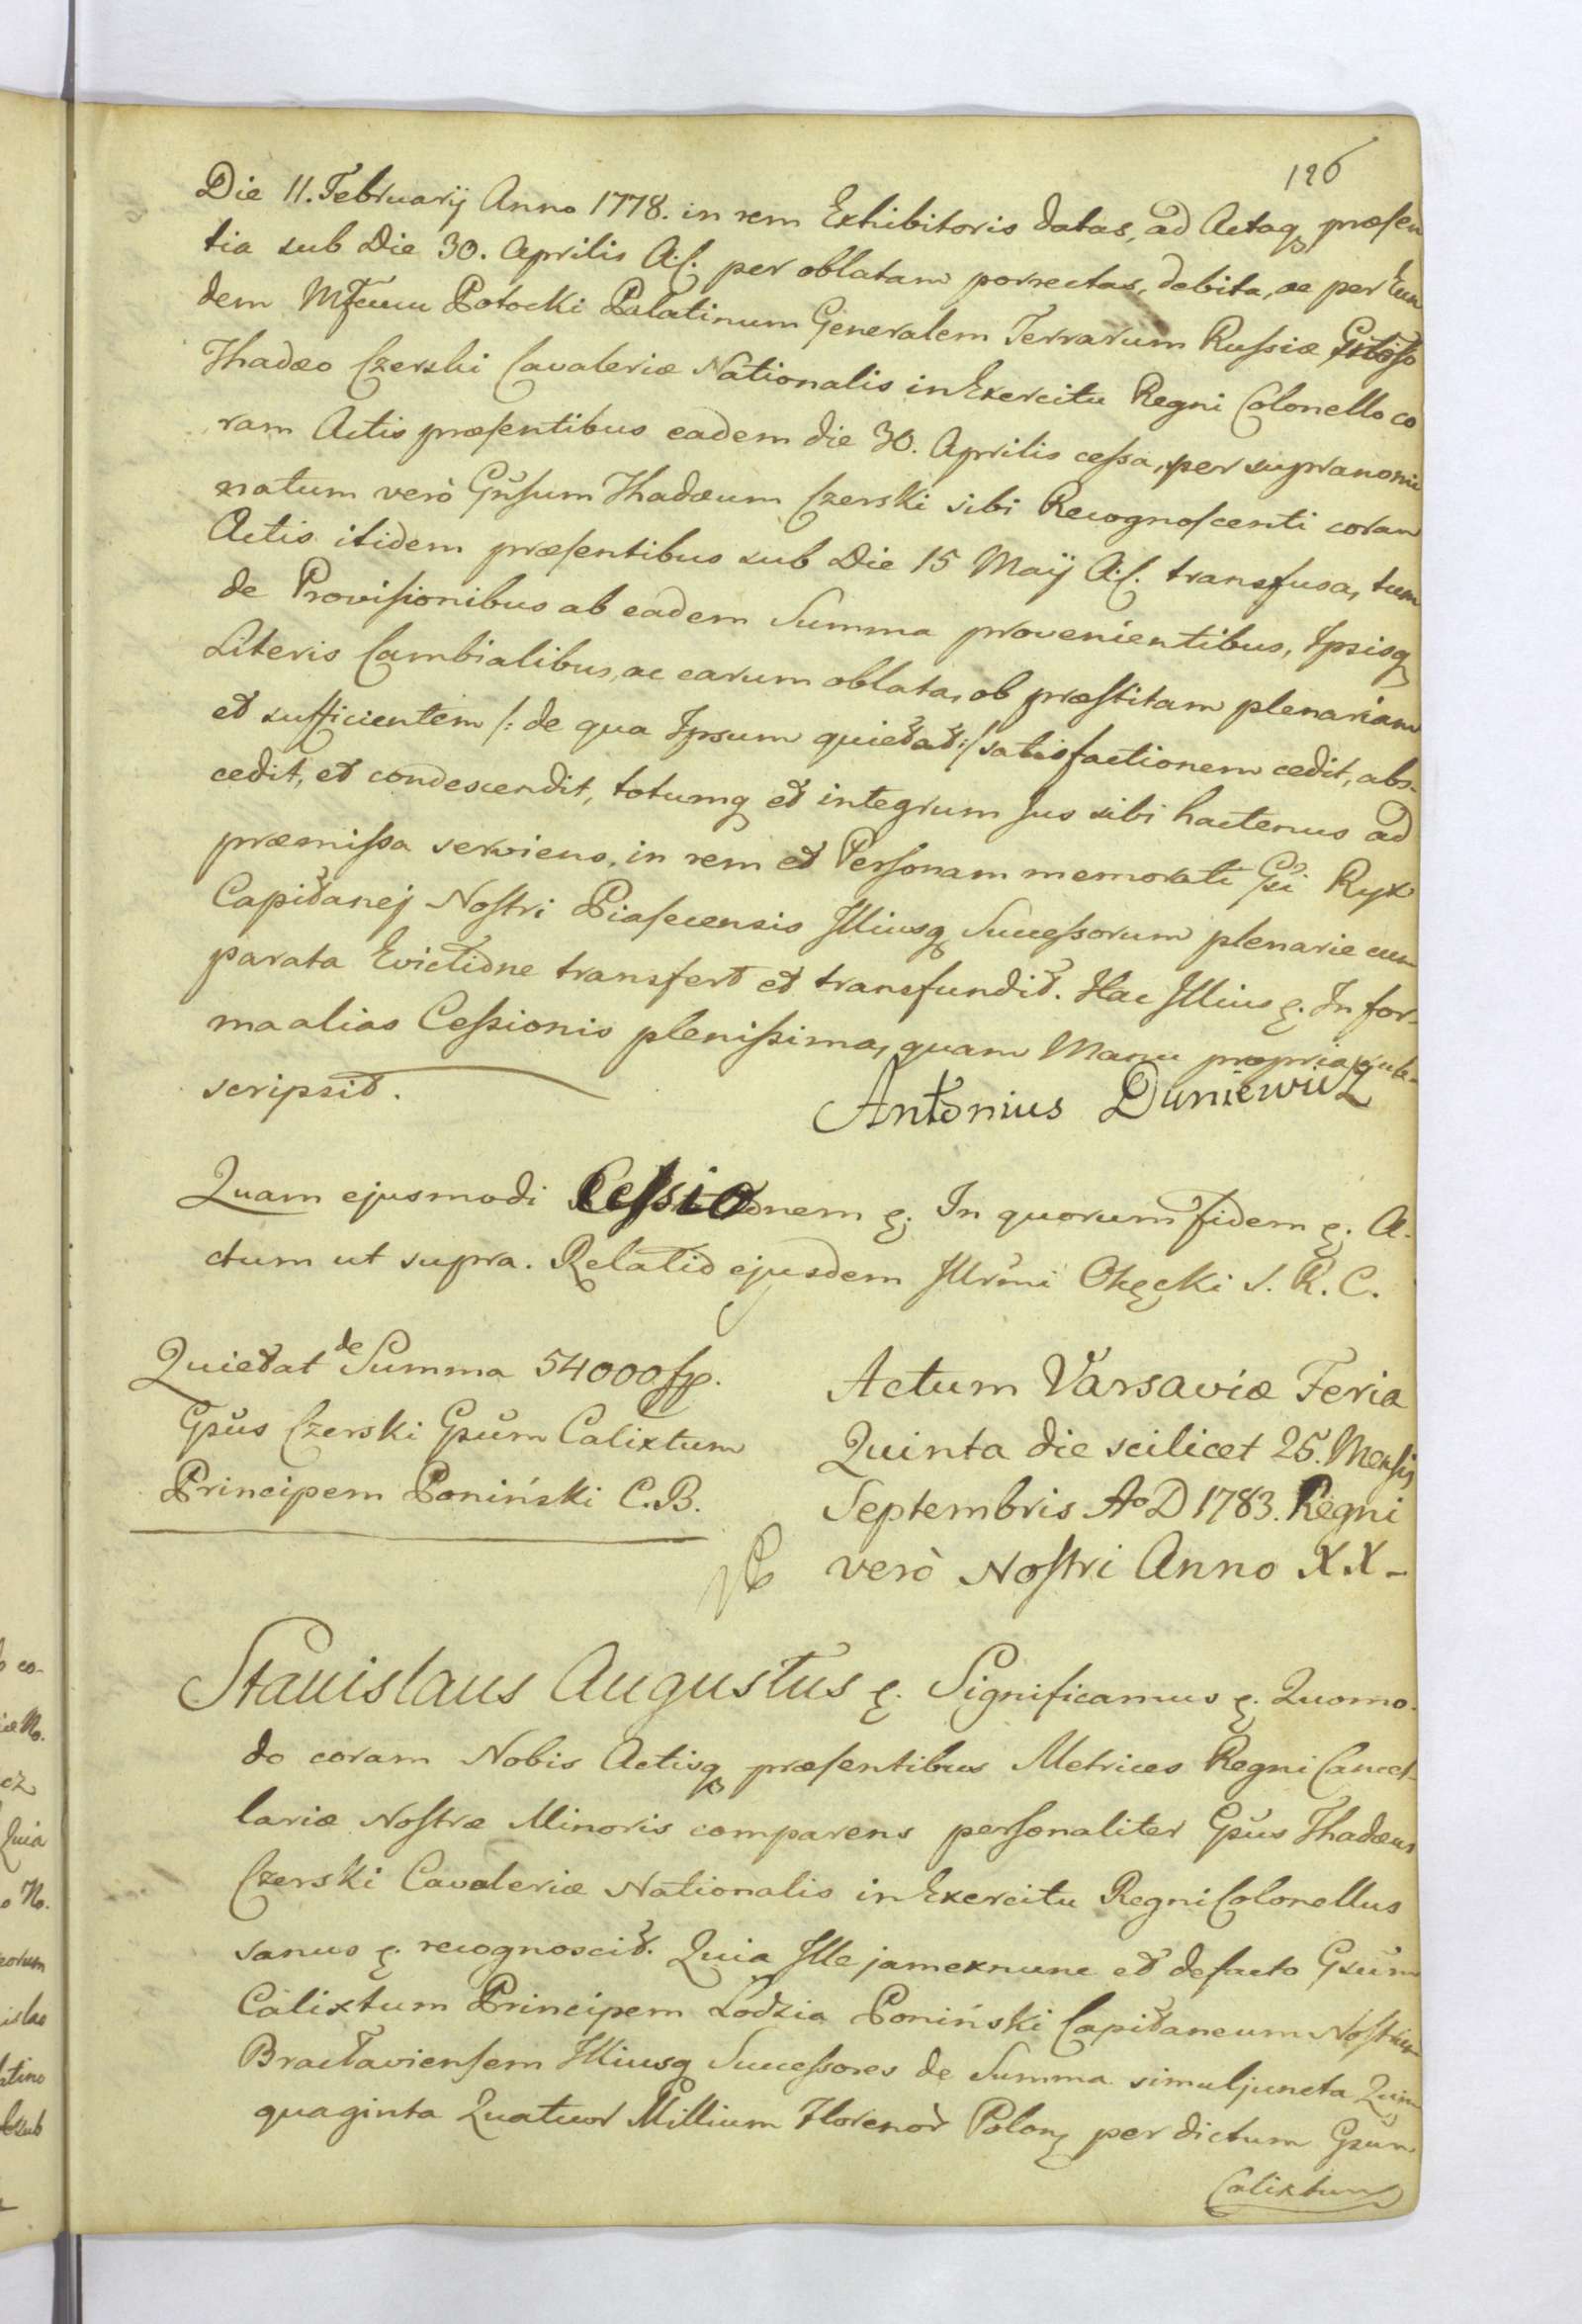 126
Die 11. Februarij Anno 1778. in rem Exhibitoris datas, ad Actaq præsen
tia sub Die 30. Aprilis A. C. per oblatam porrectas, debita, ac per Eun
dem Mfcum Potocki Palatinum Generalem Terrarum Russiæ
Thadæo Czerski Cavaleriæ Nationalis in Exercitu Regni Colonello co
ram Actis præsentibus eadem die 30. Aprilis cessa, per supranomi
natum verò Gnsum Thadæum Czerski sibi Recognoscenti coram
Actis itidem præsentibus sub Die 15 Maij A. C. transfusa, tum
de Provisionibus ab eadem Summa provenientibus, Ipsisq
Literis Cambialibus, ac earum oblata, ob præstitam plenariam
et sufficientem /: de qua Ipsum quietat :/ satisfactionem cedit, abs-
cedit, et condescendit, totumq et integrum Jus sibi hactenus ad
præmissa serviens, in rem et Personam memorati Gsi Ryx
Capitanej Nostri Piasecensis Illiusq Successorum plenarie cum
parata Evictione transfert et transfundit. Hac Illius ę. In for-
ma alias Cessionis plenissima, quam Manu propria sub-
scripsit.
Antonius Duniewicz
Quam ejusmodi Cessionem ę. In quorum fidem ę. A-
ctum ut supra. Relatio ejusdem Illrmi Okęcki S. R. C.
Quietat de Summa 54000 fp.
Gsus Czerski Gsum Calixtum
Principem Poniński C. B.
Actum Varsaviæ Feria
Quinta die scilicet 25. Mensis
Septembris Ao D 1783. Regni
verò Nostri Anno XX-
Stanislaus Augustus ę. Significamus ę. Quomo-
do coram Nobis Actisq præsentibus Metrices Regni Cancel-
lariæ Nostræ Minoris comparens personaliter Gsus Thadæus
Czerski Cavaleriæ Nationalis in Exercitu Regni Colonellus
sanus ę. recognoscit. Quia Ille jam exnunc et defacto Gsum
Calixtum Principem Lodzia Poniński Capitaneum Nostrum
Bractaviensem Illiusq Successores de Summa simuljuncta Quin
quaginta Quatuor Millium Florenor Polon per dictum Gsum
Calixtum